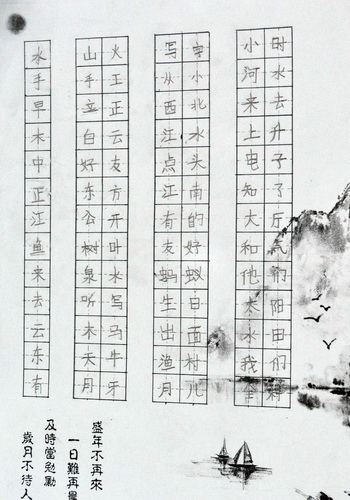 时水去升子了厅气们阳田们
小河来上电知大和他太水我全
字小北水头南的好蚁白面村儿
写从西江点江有友蚂生出渔月
火王正云友方开叶水写马牛牙
山手立白好东公树泉听木天月
水手早木中正江鱼来去云东有
盛年不再來
一日難再晨
及時當勉勵
歲月不待人